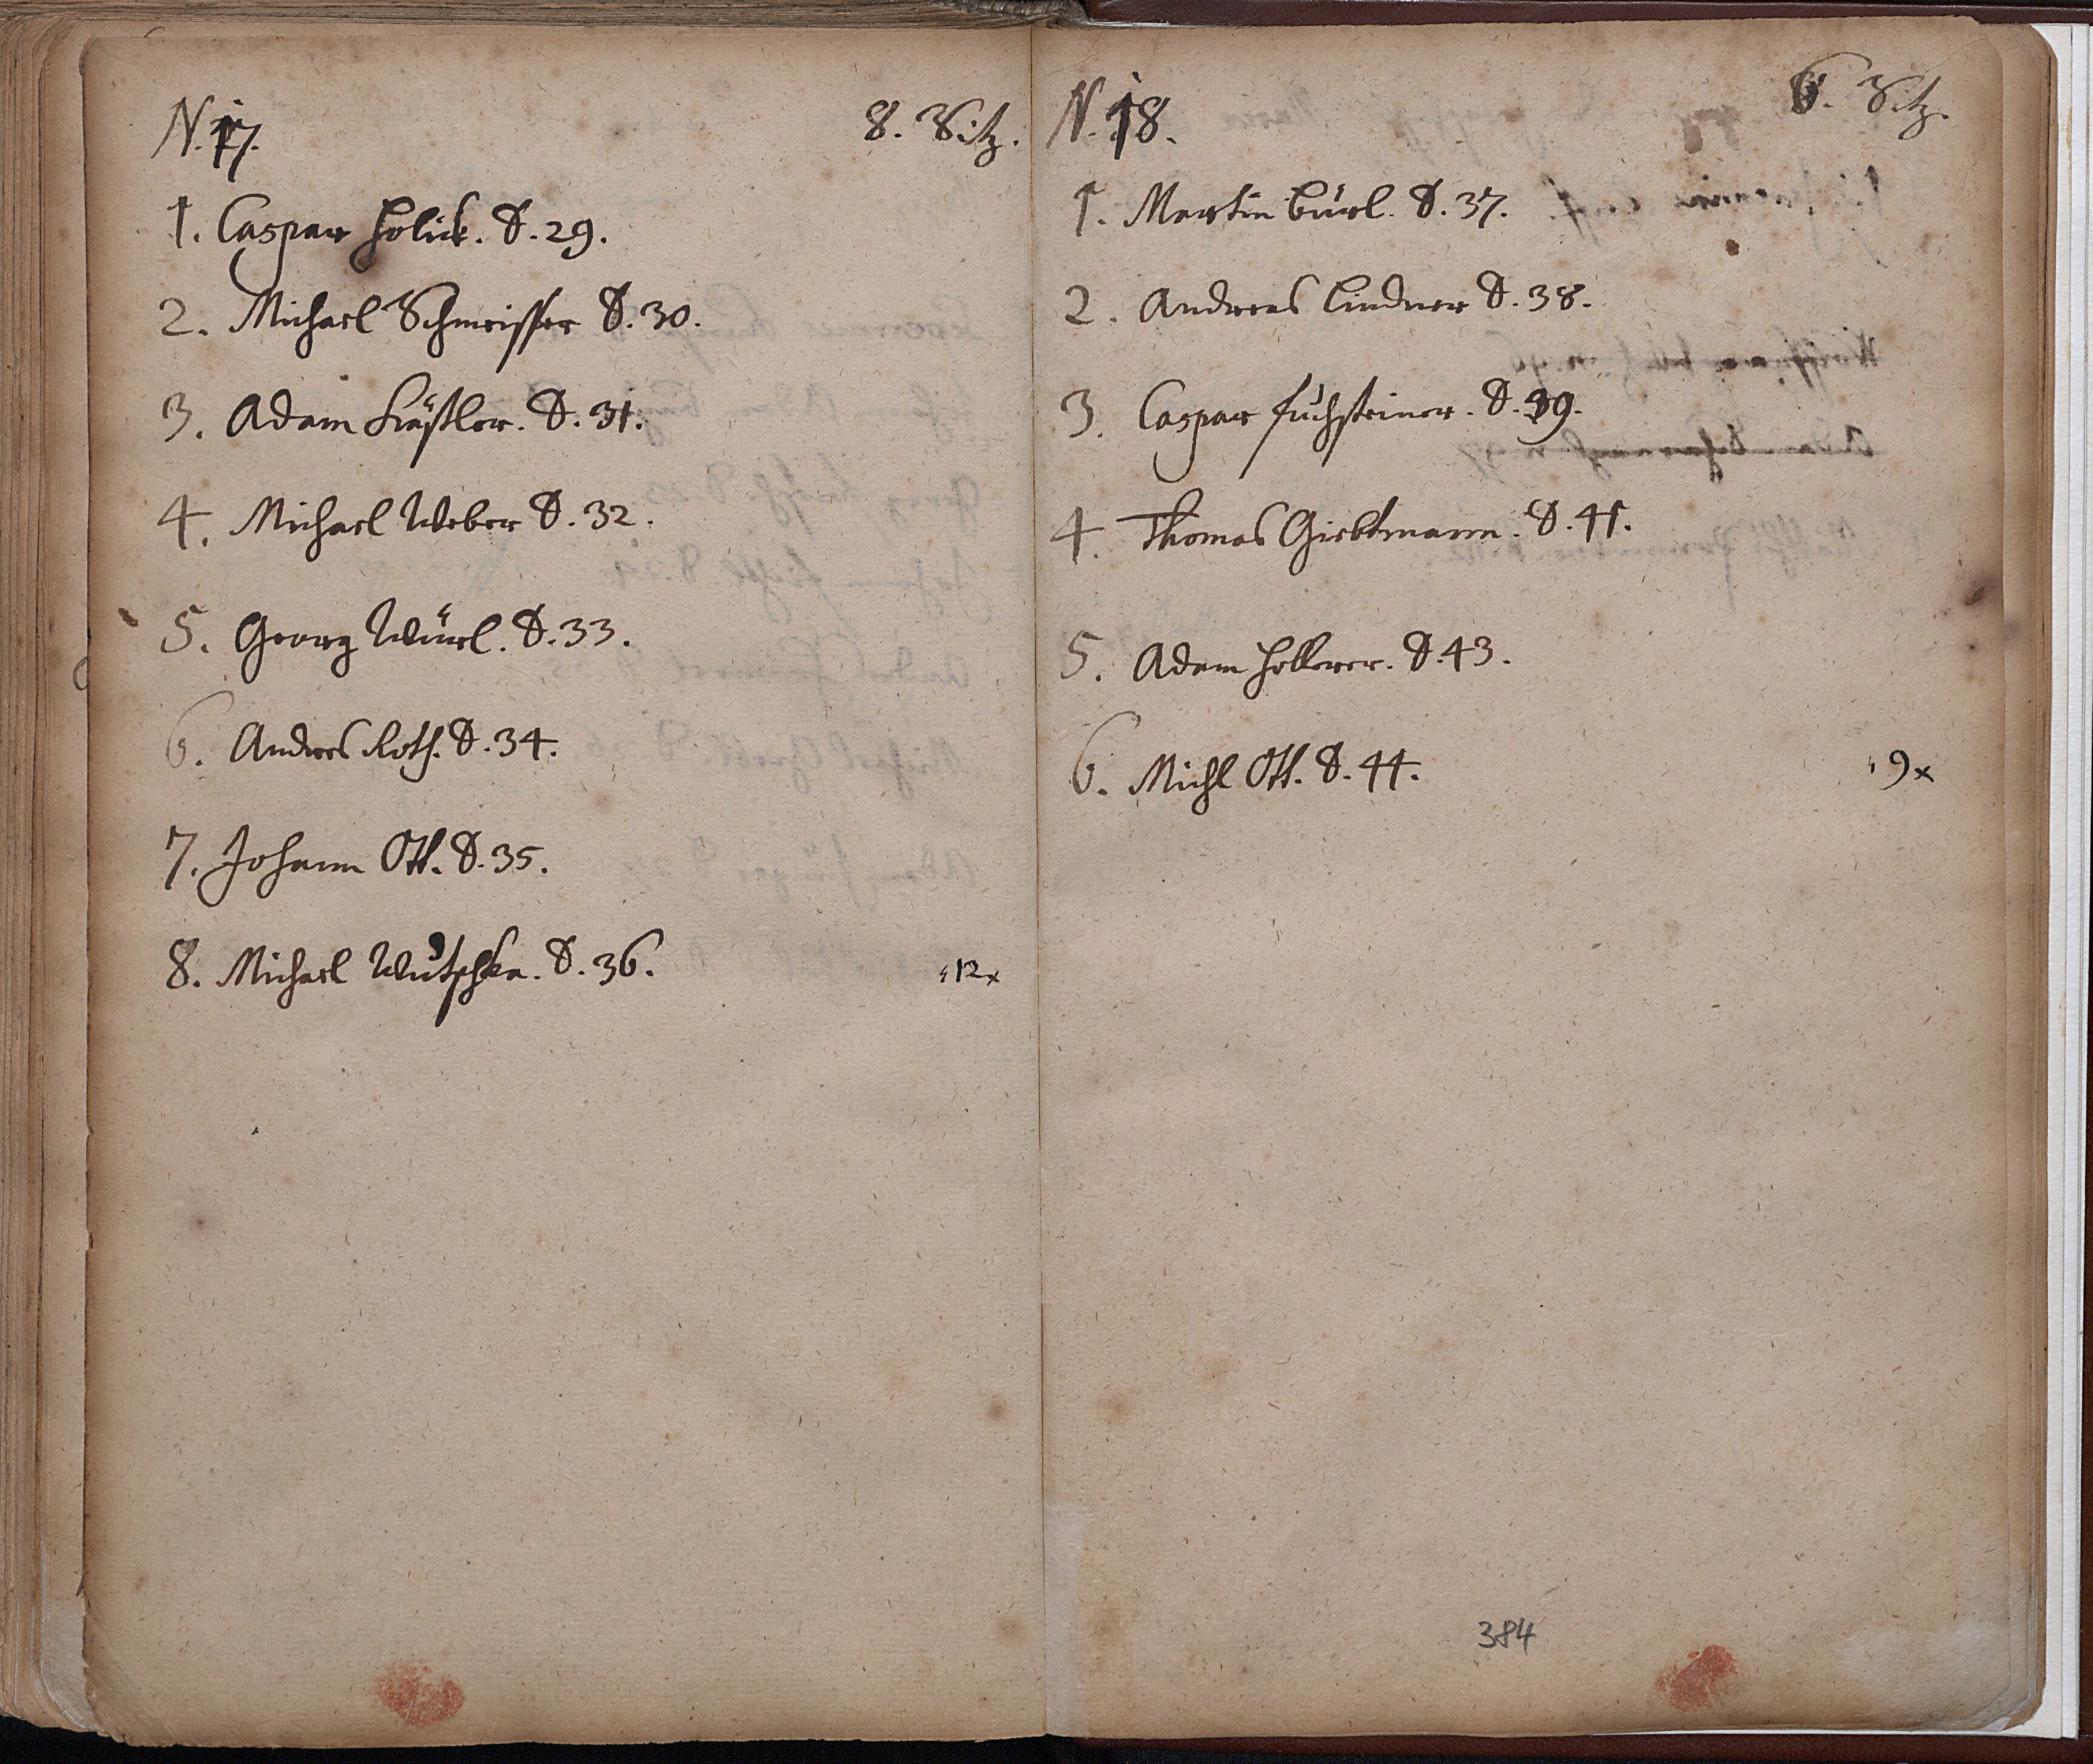 N. 17.
8. Sitz.
1. Caspar Holick. D. 29.
2. Michael Schmeisser D. 30.
3. Adam Kästler. D. 31.
4. Michael Weber D. 32.
5. Georg Würl. D. 33.
6. Andres Roth. D. 34.
7. Johann Ott. D. 35.
8. Michael Wutschka. D. 36.
12x
N. 18.
6. Sitz.
1. Martin Bürl. D. 37.
2. Andreas Lindner D. 38.
3. Caspar Fuchsteiner. D. 39.
4. Thomas Giebtmann. D. 41.
5. Adam Hollerer. D. 43.
6. Michl Ott. D. 44.
9x
384